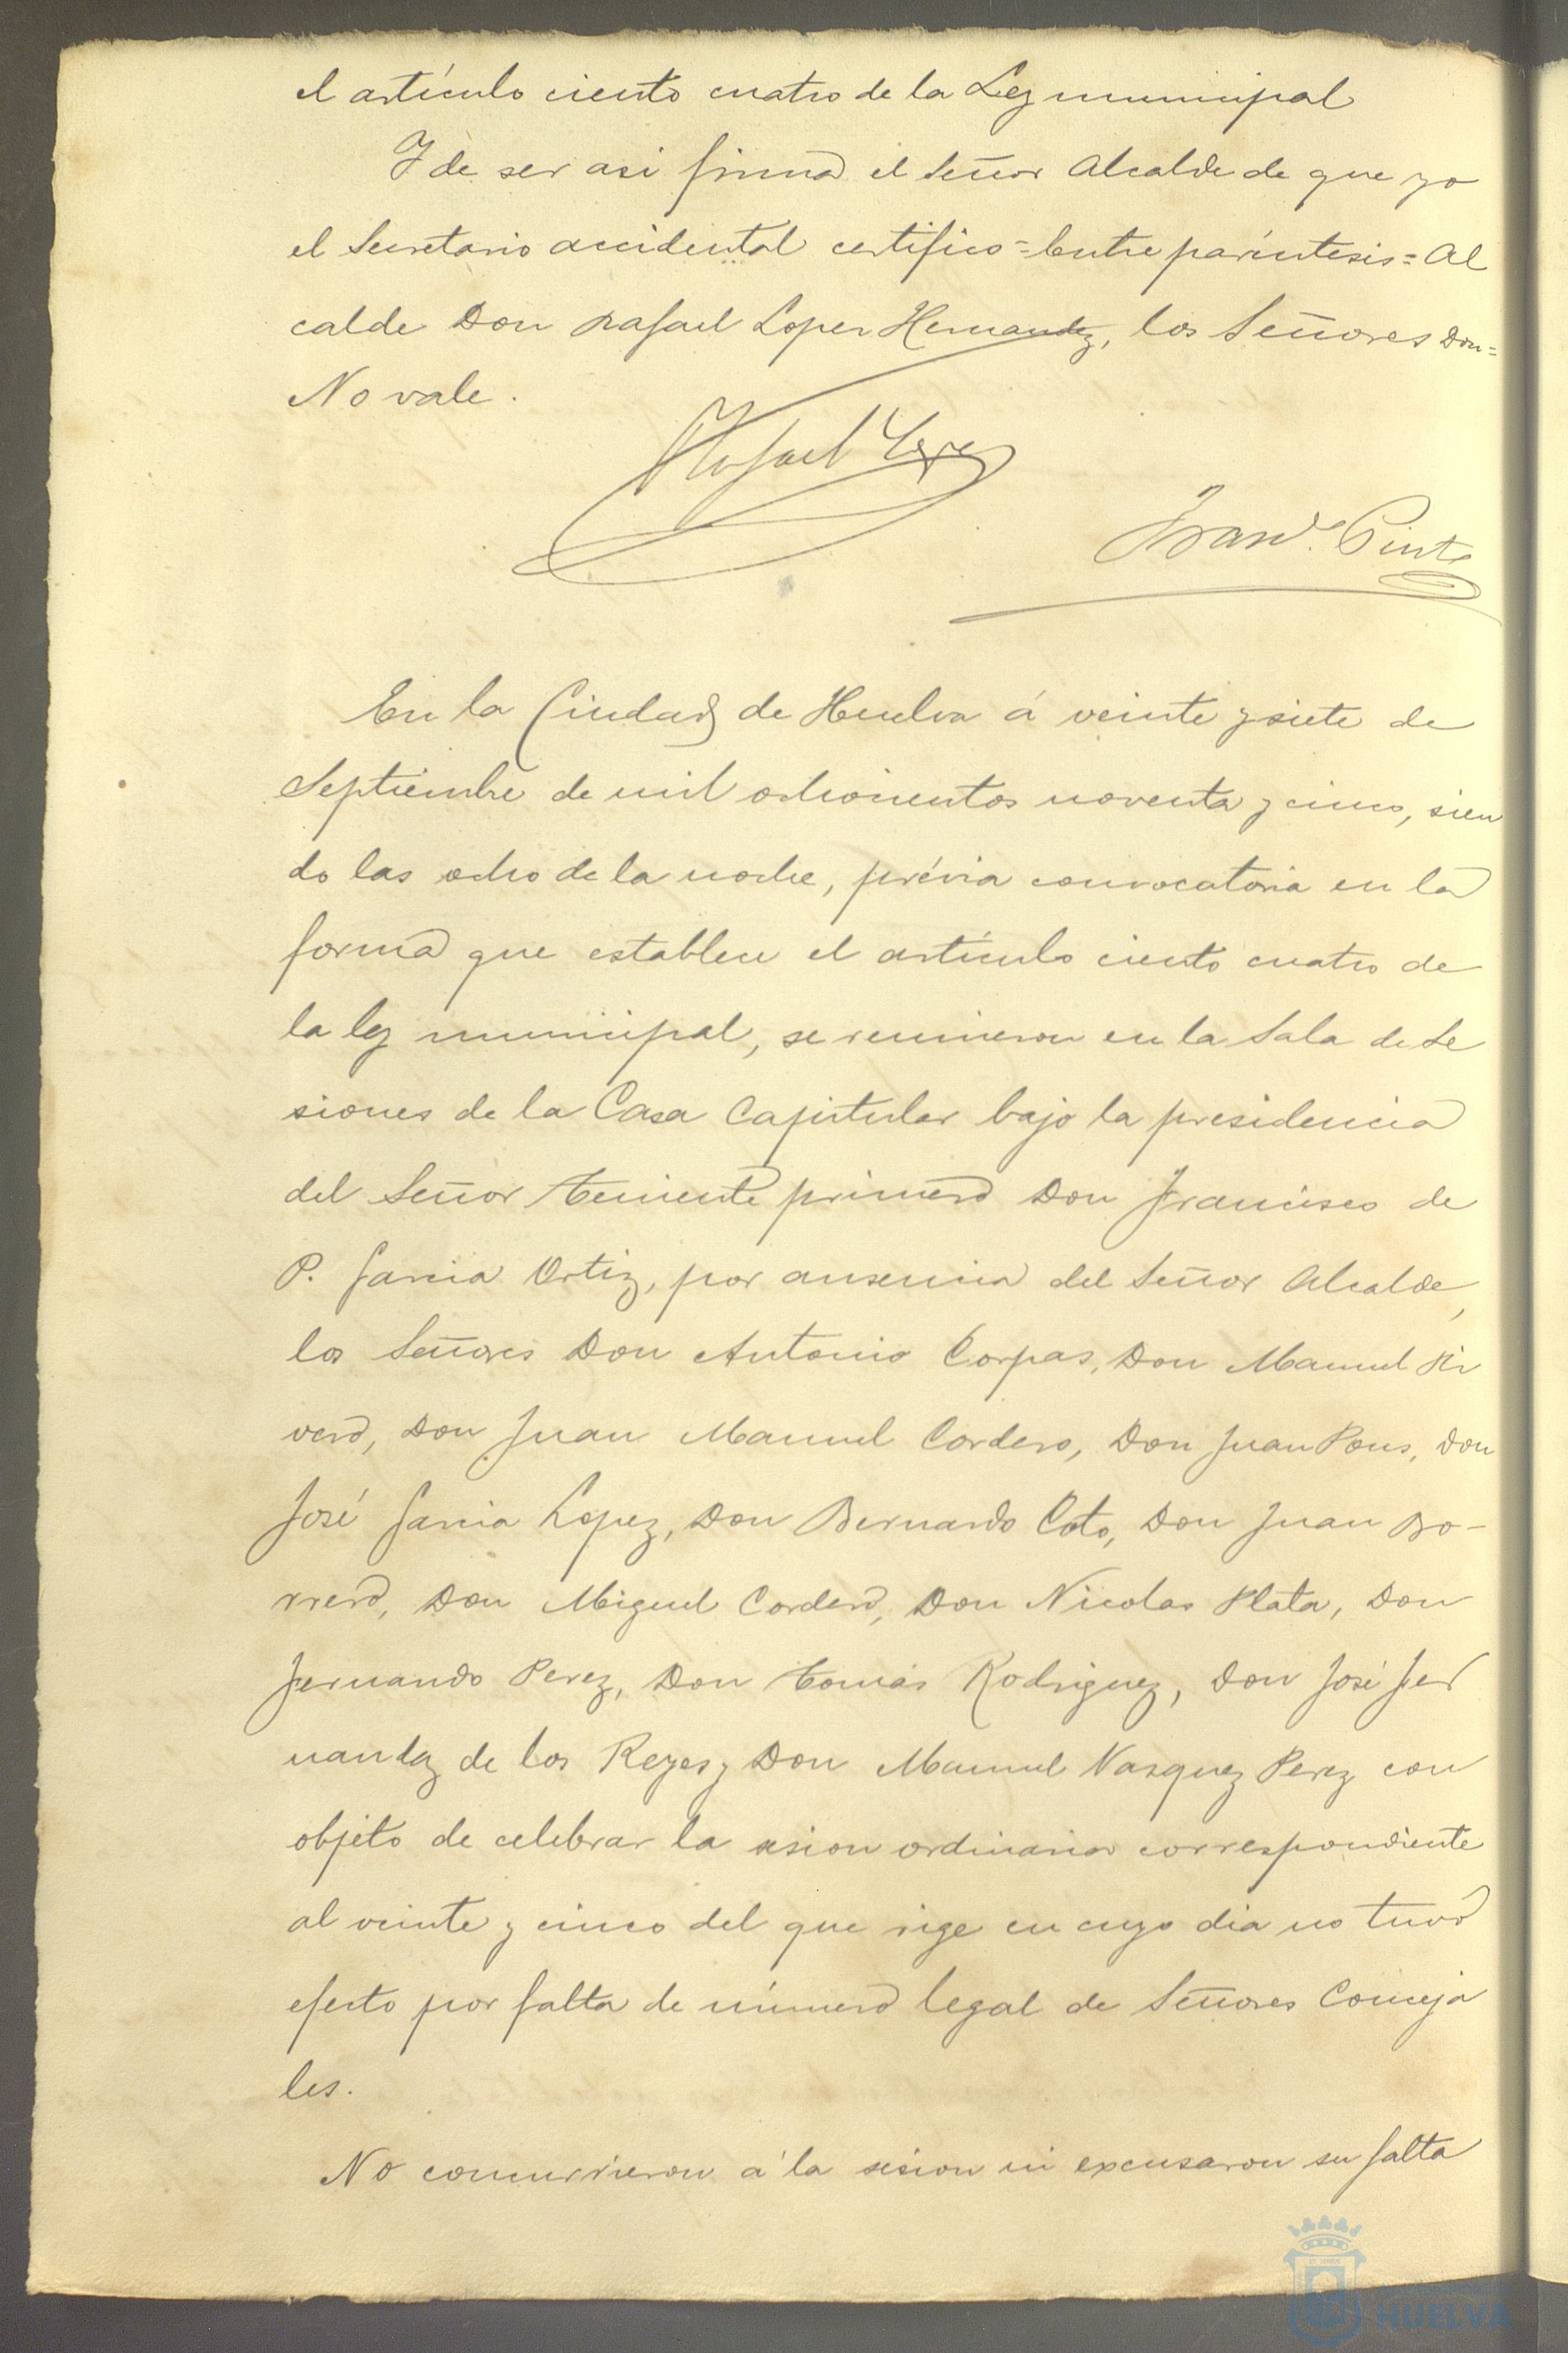 el artículo ciento cuatro de la Ley municipal
Y de ser asi firma el Señor Alcalde de que yo
el Secretario accidental certifico = Entre paréntesis = Al
calde Don Rafael Lopez Hernandez, los Señores Don =
No vale.
Rafael Lopez
Franco. Pinto
En la Ciudad de Huelva á veinte y siete de
Septiembre de mil ochocientos noventa y cinco, sien
do las ocho de la noche, prévia convocatoria en la
forma que establece el artículo ciento cuatro de
la ley municipal, se reunieron en la Sala de Se
siones de la Casa Capitular bajo la presidencia
del Señor Teniente primero Don Francisco de
P. Garcia Ortiz, por ausencia del Señor Alcalde,
los Señores Don Antonio Corpas, Don Manuel Ri
vero, Don Juan Manuel Cordero, Don Juan Pons, Don
José Garcia Lopez, Don Bernardo Coto, Don Juan Bo-
rrero, Don Miguel Cordero, Don Nicolas Plata, Don
Fernando Perez, Don Tomás Rodriguez, Don José Fer
nandez de los Reyes y Don Manuel Vasquez Perez con
objeto de celebrar la sesion ordinaria correspondiente
al veinte y cinco del que rige en cuyo dia no tuvo
efecto por falta de número legal de Señores Conceja
les.
No concurrieron á la sesion ni excusaron su falta
HUELVA